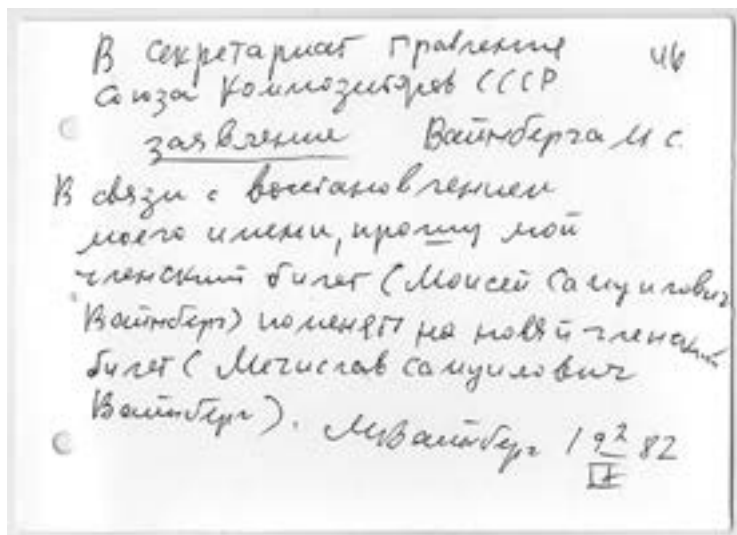 В секретариат Правления
46
Союза Композиторов СССР
заявление Вайнберга М с.
В связи с восстановлением
моего имени, прошу мой
членский билет (Моисей Самуилович
Вайнберг) поменять на новый членский
билет (Мечислав Самуилович
Вайнберг). МВайнберг 19 2 82
IX